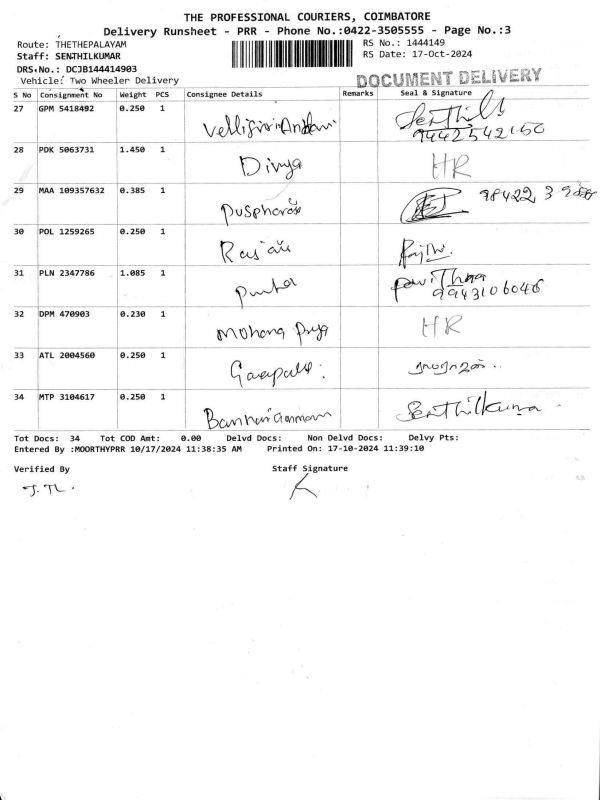 THE PROFESSIONAL COURIERS, COIMBATORE
Delivery Runsheet - PRR - Phone No.:0422-3505555 - Page No.:3
Route: THETHEPALAYAM
RS No.: 1444149
Staff: SENTHILKUMAR
RS Date: 17-Oct-2024
DRS.No.: DCJB144414903
Vehicle: Two Wheeler Delivery
DOCUMENT DELIVERY
S No Consignment No Weight PCS Consignee Details Remarks Seal & Signature
27 GPM 5418492 0.250 1
28 PDK 5063731 1.450 1 Divya HR
29 MAA 109357632 0.385 1
30 POL 1259265 0.250 1
31 PLN 2347786 1.085 1
9943106046
32 DPM 470903 0.230 1 Mohana Priya HR
33 ATL 2004560 0.250 1
34 MTP 3104617 0.250 1 Senthilkumar
Tot Docs: 34 Tot COD Amt: 0.00 Delvd Docs: Non Delvd Docs: Delvy Pts:
Entered By :MOORTHYPRR 10/17/2024 11:38:35 AM Printed On: 17-10-2024 11:39:10
Verified By Staff Signature